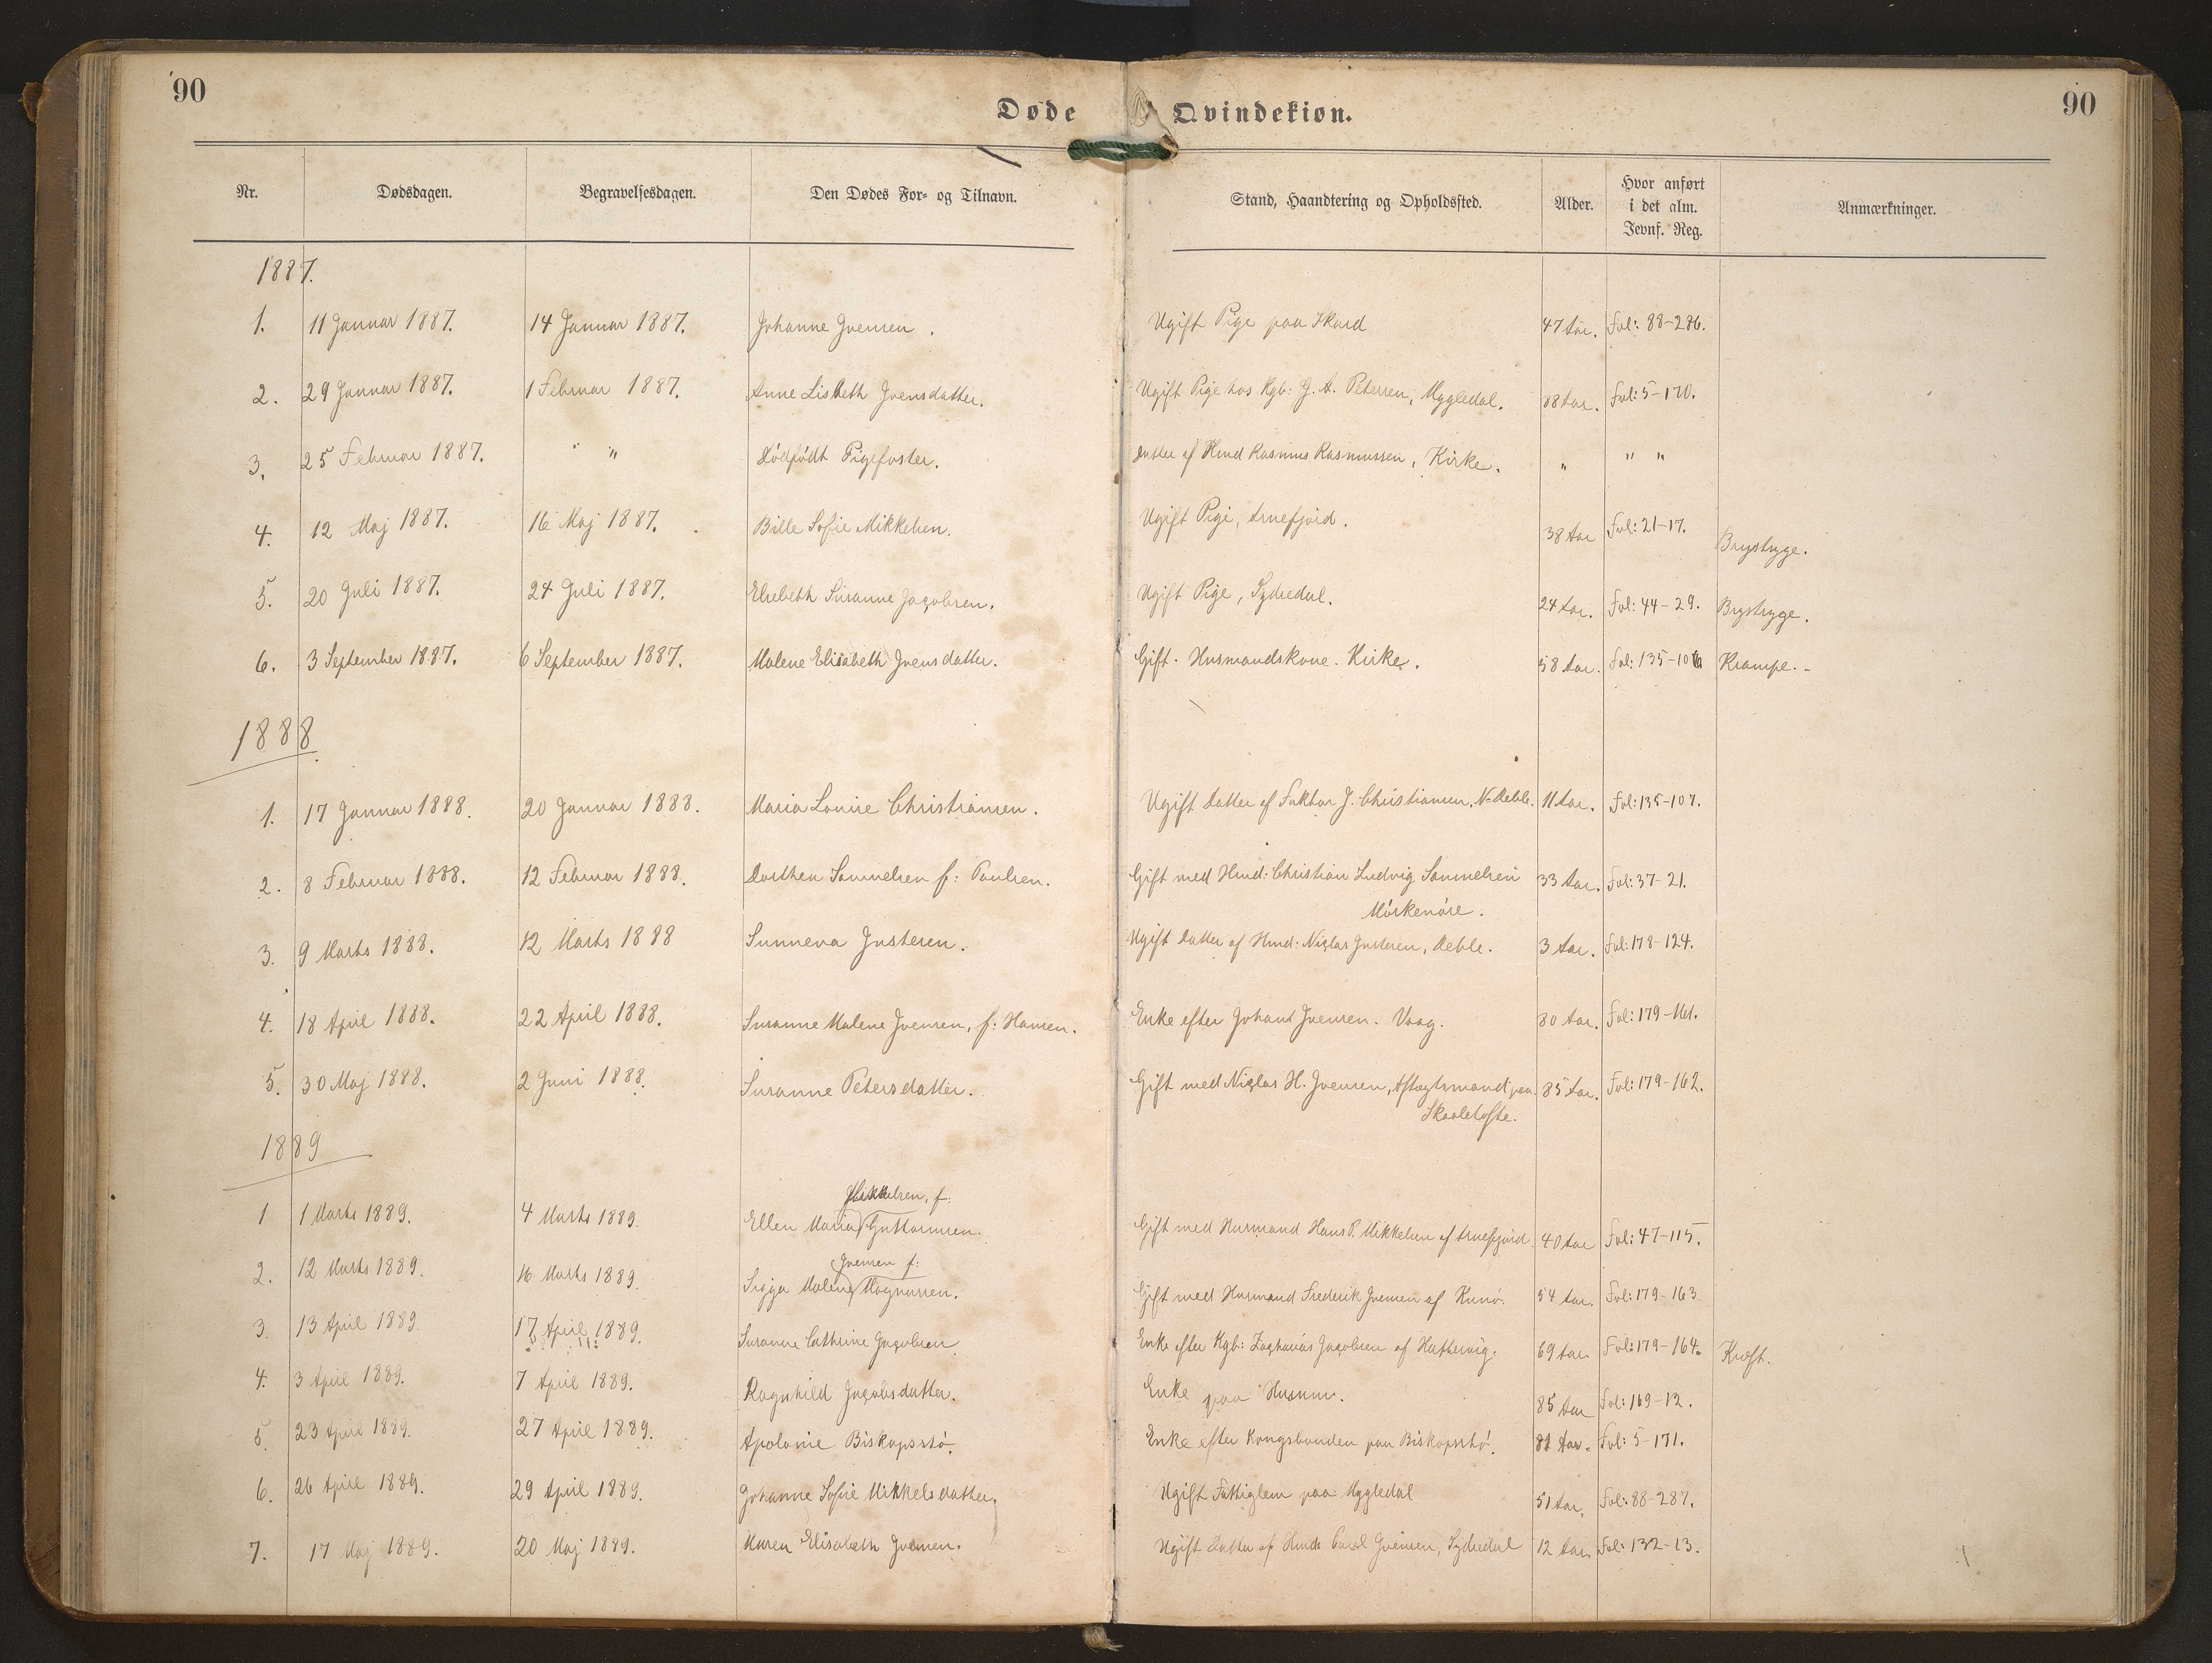 90
Døde Qvindekiøn.
90
Nr. Dødsdagen. Begravelsesdagen. Den Dødes For- og Tilnavn. Stand, Haandtering og Opholdssted. Alder. Hvor anført i det alm. Jevnf. Reg. Anmærkninger.
1887.
1. 11 Januar 1887. 14 Januar 1887. Johanne Joensen. Ugift Pige paa Skard 47 Aar. Fol: 88-286.
2. 29 Januar 1887. 1 Februar 1887. Anne Lisbeth Joensdatter. Ugift Pige hos Kgb: J. A. Petersen, Myggledal. 88 Aar. Fol: 5-170.
3. 25 Februar 1887. " " Dödfödt Pigefoster. Datter af Hmd Rasmus Rasmussen, Kirke. " " "
4. 12 Maj 1887. 16 Maj 1887. Bille Sofie Mikkelsen. Ugift Pige, Arnefjord. 38 Aar Fol: 21-17. Brystsyge.
5. 20 Juli 1887. 24 Juli 1887. Elsebeth Susanne Jacobsen. Ugift Pige, Sydredal. 24 Aar. Fol: 44-29. Brystsyge.
6. 3 September 1887. 6 September 1887. Malene Elisabeth Joensdatter. Gift. Husmandskone. Kirke. 58 Aar. Fol: 135-106 Krampe.-
1888.
1. 17 Januar 1888. 20 Januar 1888. Maria Louise Christiansen. Ugift Datter af Faktor J. Christiansen, N-Deble. 11 Aar. Fol: 135-107.
2. 8 Februar 1888. 12 Februar 1888. Dorthea Sammelsen f: Poulsen. Gift med Hmd: Christian Ludvig Sammelsen 33 Aar. Fol: 37-21.
Mórkenóre.
3. 9 Marts 1888. 12 Marts 1888 Sunneva Justesen. Ugift Datter af Hmd: Niclas Justesen, Deble. 3 Aar. Fol: 178-124.
4. 18 April 1888. 22 April 1888. Susanne Malene Joensen, f: Hansen. Enke efter Johans Joensen. Vaag. 80 Aar. Fol: 179-
5. 30 Maj 1888. 2 Juni 1888. Susanne Petersdatter. Gift med Niclas H. Joensen, Aftægtsmand paa 85 Aar. Fol: 179-162.
Skaaletofte.
1889
Mikkelsen, f:
1 1 Marts 1889. 4 Marts 1889. Ellen Maria Guttormsen. Gift med Husmand Hans P. Mikkelsen af Arnefjord. 40 Aar Fol: 47-115.
Joensen f:
2. 12 Marts 1889. 16 Marts 1889. Sigga Malene Magnussen. Gift med Husmand Frederik Joensen af Kunó. 54 Aar. Fol: 179-163
3. 13 April 1889. 17 April 1889. Susanne Cathrine Jacobsen. Enke efter Kgb: Zacharias Jacobsen af Hattervig. 69 Aar. Fol: 179-164. Kræft.
4. 3 April 1889. 7 April 1889. Ragnhild Jacobsdatter. Enke paa Husum. 85 Aar Fol: 169-12.
5. 23 April 1889. 27 April 1889. Apolonie Biskopsstó. Enke efter Kongsbonden paa Biskopsstó. 81 Aar. Fol: 5-171.
6. 26 April 1889. 29 April 1889. Johanne Sofie Mikkelsdatter. Ugift Fattiglem paa Myggledal 51 Aar. Fol: 88-287.
7. 17 Maj 1889. 20 Maj 1889. Maren Elisabeth Joensen. Ugift Datter af Hmd: Joensen, Sydredal 12 Aar. Fol: 132-13.